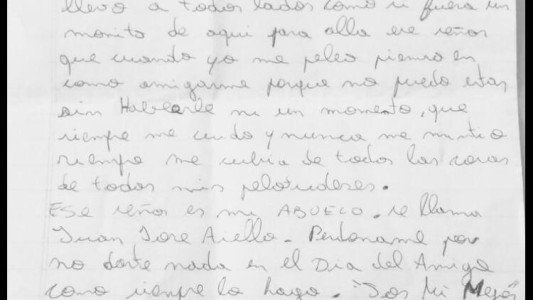 llevo a todos lados como si fuera un
monito de aqui para alla ese señor
que cuando yo me peleo pienso en
como amigarme porque no puedo estar
sin Hablarle ni un momento, que
siempre me cuido y nunca me mintio
siempre me cubia de todas las cosas
de todos mis
ESE señor es mi ABUELO. se llama
Juan Jose Aiello. Perdoname por
no darte nada en el Dia del Amigo
como siempre lo hago. "Sos Mi Mejor